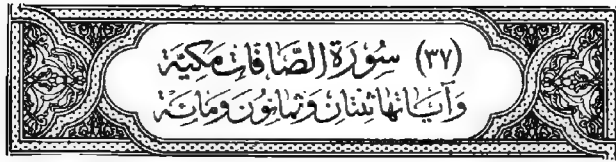 (٣٧) سُورَة الصَّافَّاتِ مَكيَّة
وَآيَاتهَا ثِنتَان وَثَمانُونَ وَمَائة